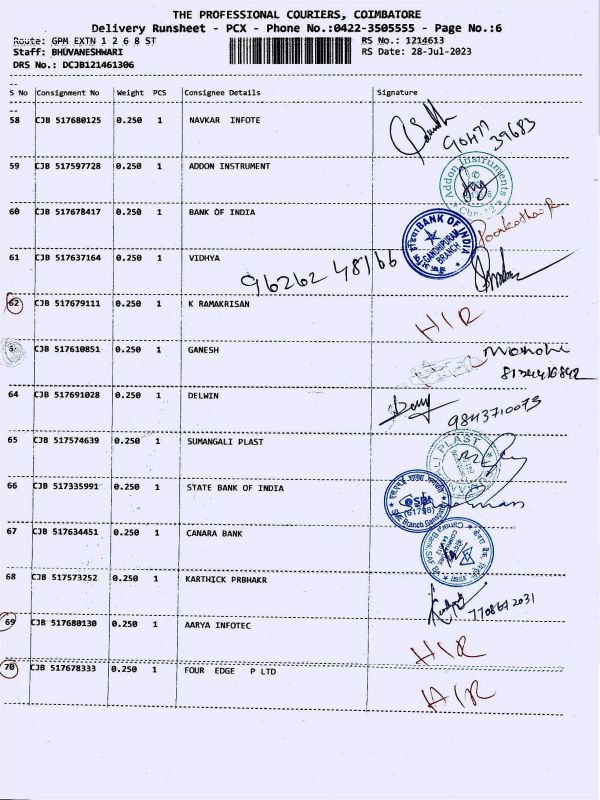 THE PROFESSIONAL COURIERS, COIMBATORE
Delivery Runsheet - PCX - Phone No.:0422-3505555 - Page No.:6
Route: GPM EXTN 1 2 6 8 ST
RS No.: 1214613
Staff: BHUVANESHWARI
RS Date: 28-Jul-2023
DRS No.: DCJB121461306
S No Consignment No Weight PCS Consignee Details Signature
58 CJB 517680125 0.250 1 NAVKAR INFOTE
90477 39683
59 CJB 517597728 0.250 1 ADDON INSTRUMENT
Addon Instruments
60 CJB 517678417 0.250 1 BANK OF INDIA
BANK OF INDIA
GANDHIPURAM BRANCH
61 CJB 517637164 0.250 1 VIDHYA
96262 48166
62 CJB 517679111 0.250 1 K RAMAKRISAN
HIR
CJB 517610851 0.250 1 GANESH
64 CJB 517691028 0.250 1 DELWIN
9843710073
65 CJB 517574639 0.250 1 SUMANGALI PLAST
PLAST
66 CJB 517335991 0.250 1 STATE BANK OF INDIA
SBI
67 CJB 517634451 0.250 1 CANARA BANK
Canara Bank
68 CJB 517573252 0.250 1 KARTHICK PRBHAKR
7708672031
69 CJB 517680130 0.250 1 AARYA INFOTEC
HIR
70 CJB 517678333 0.250 1 FOUR EDGE P LTD
HIR